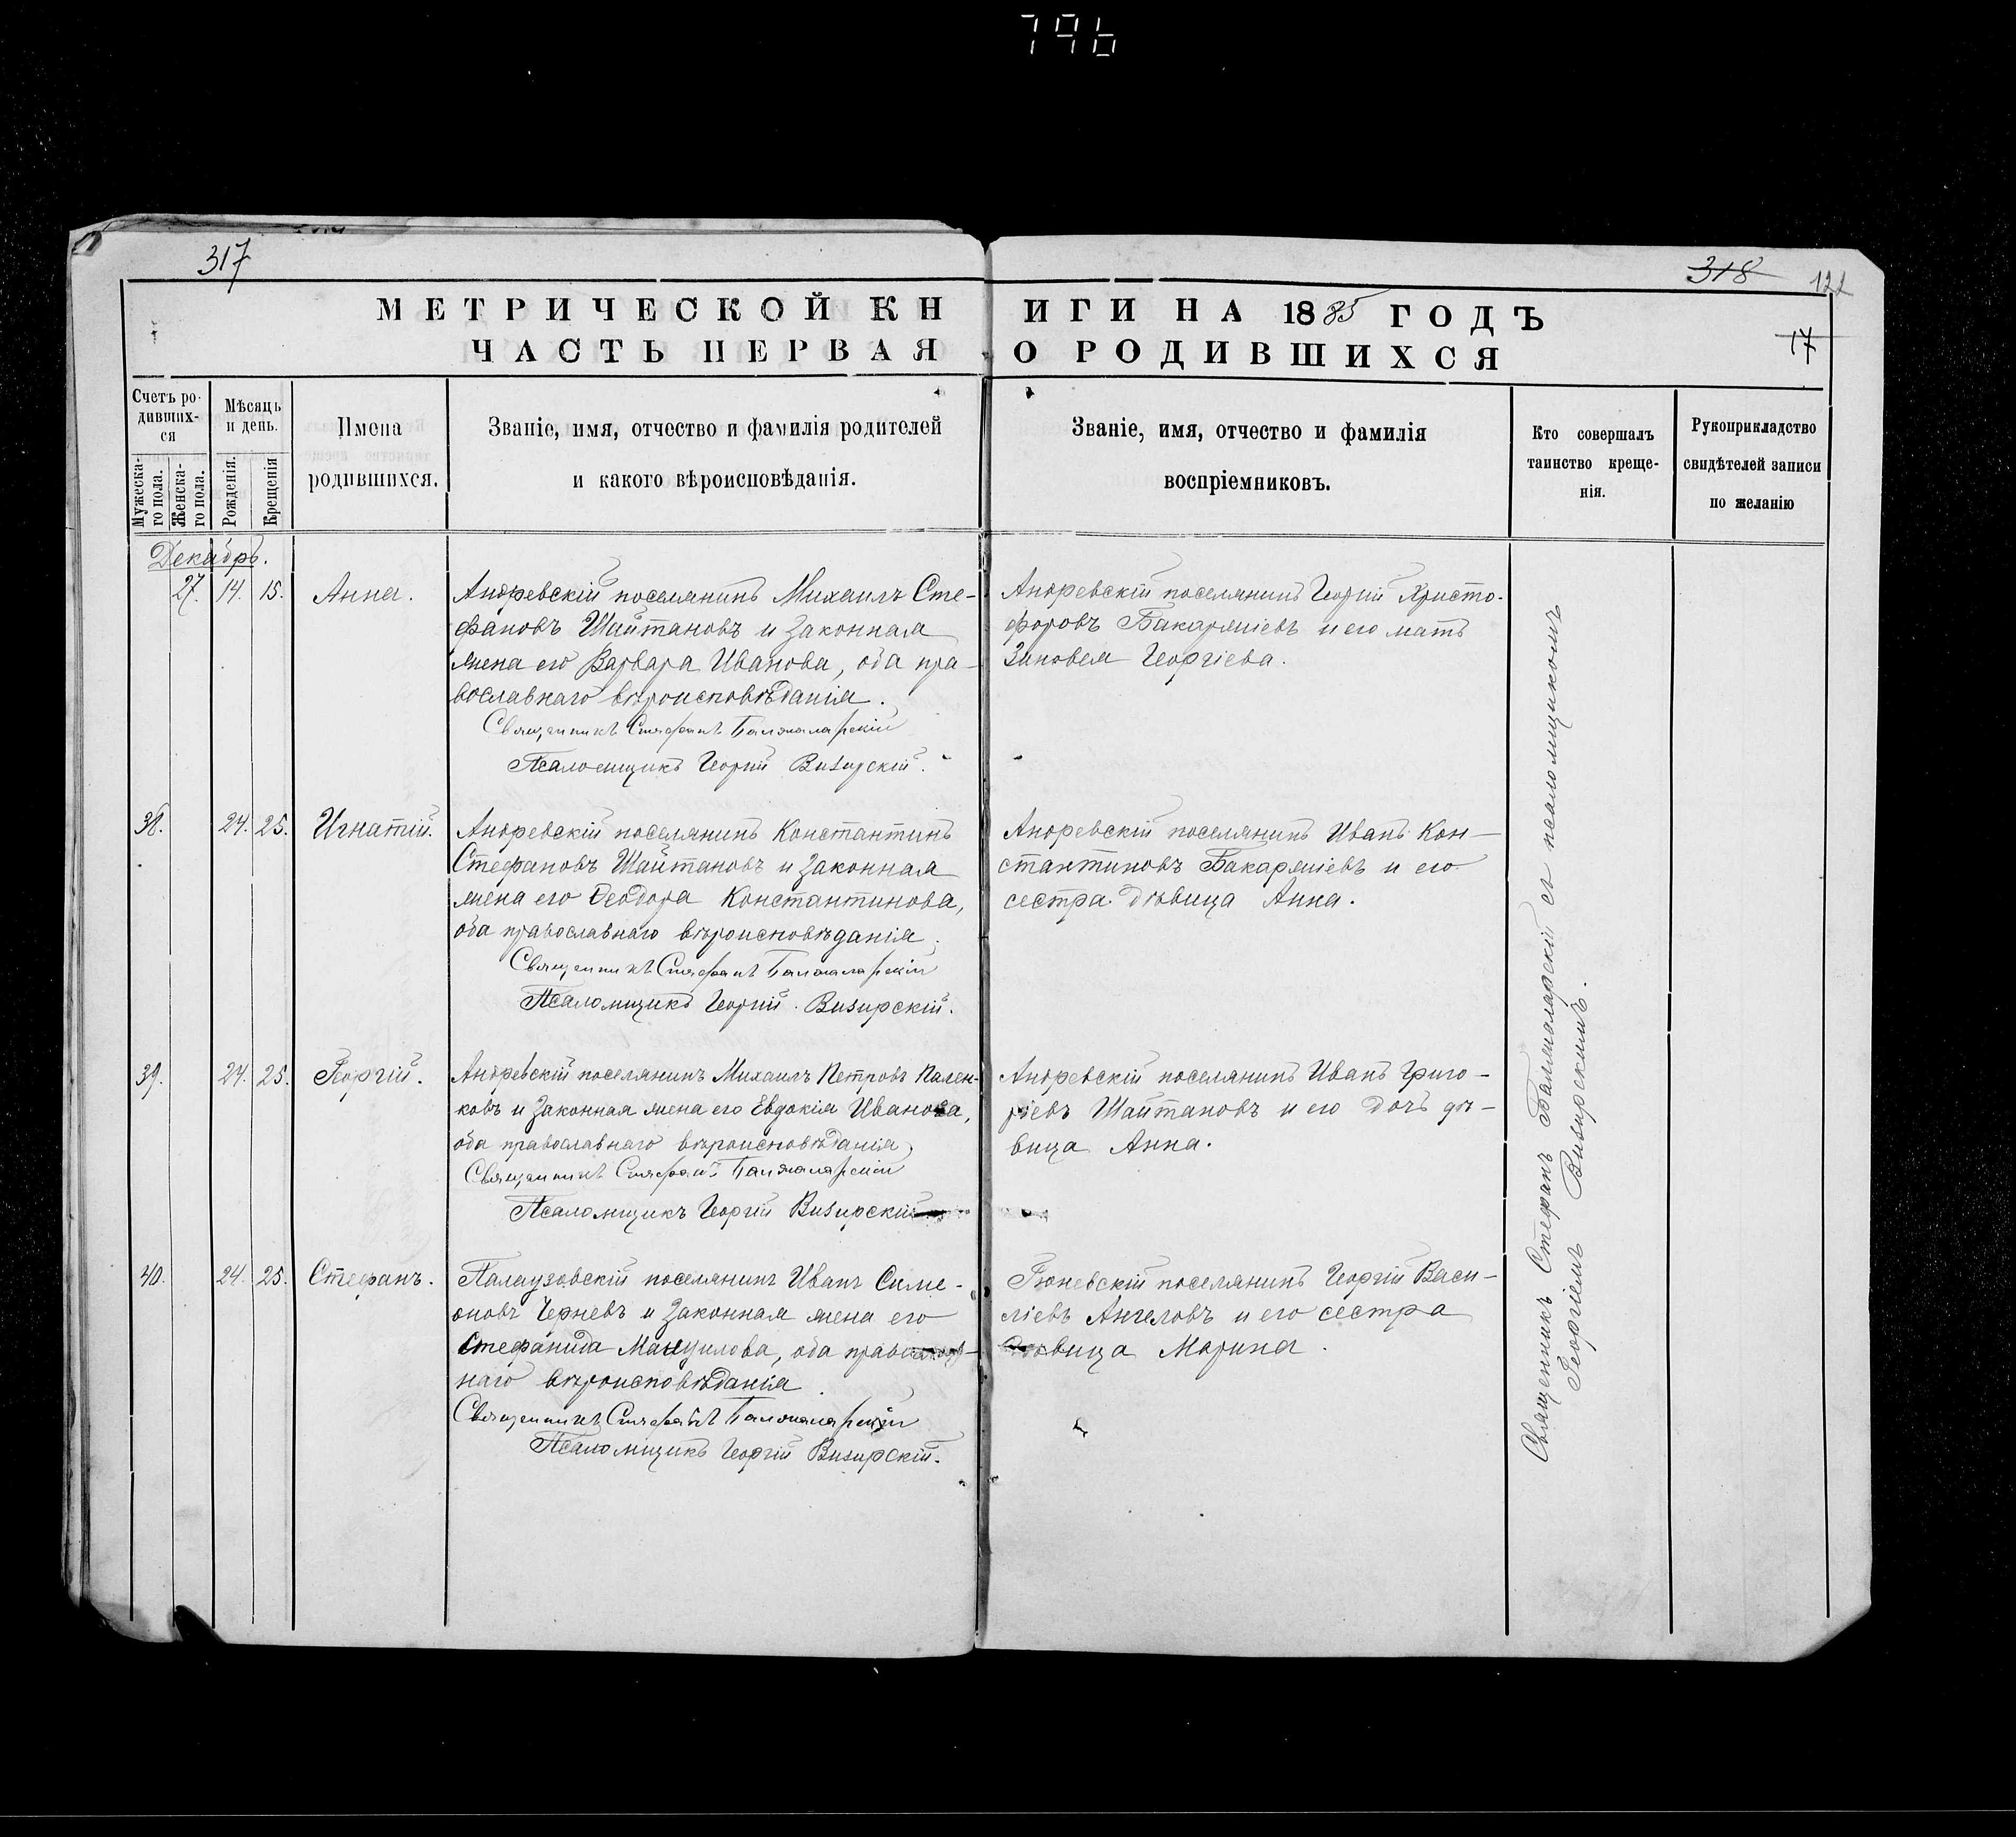 796
317
318
122
17
МЕТРИЧЕСКОЙ КНИГИ НА 1885 ГОДЪ
ЧАСТЬ ПЕРВАЯ О РОДИВШИХСЯ
Счетъ родившихся
Мужескаго пола.
Женскаго пола.
Мѣсяцъ и день.
Рожденія.
Крещенія
Имена
родившихся.
Званіе, имя, отчество и фамилія родителей
и какого вѣроисповѣданія.
Званіе, имя, отчество и фамилія
воспріемниковъ.
Кто совершалъ
таинство креще-
нія.
Рукоприкладство
свидѣтелей записи
по желанію
Декабрь.
27. 14. 15. Анна.
Андревскій поселянинъ Михаилъ Сте-
фановъ Шайтановъ и законная
жена его Варвара Иванова, оба пра-
вославнаго вѣроисповѣданія.
Священникъ Стефанъ Балжаларскій
Псаломщикъ Георгій Визирскій.
Андревскій поселянинъ Георгій Христо-
форовъ Бакаржіевъ и его мать
Зиновея Георгіева.
38. 24. 25. Игнатій.
Андревскій поселянинъ Константинъ
Стефановъ Шайтановъ и законная
жена его Ѳеодора Константинова,
оба православнаго вѣроисповѣданія.
Священникъ Стефанъ Балжаларскій
Псаломщикъ Георгій Визирскій.
Андревскій поселянинъ Иванъ Кон-
стантиновъ Бакаржіевъ и его
сестра дѣвица Анна.
39. 24. 25. Георгій.
Андревскій поселянинъ Михаилъ Петровъ Пален-
ковъ и законная жена его Евдокія Иванова,
оба православнаго вѣроисповѣданія,
Священникъ Стефанъ Балжаларскій
Псаломщикъ Георгій Визирскій
Андревскій поселянинъ Иванъ Григо-
ріевъ Шайтановъ и его дочь дѣ-
вица Анна.
40. 24. 25. Стефанъ.
Палаузовскій поселянинъ Иванъ Симе-
оновъ Черневъ и законная жена его
Стефанида Мануилова, оба православ-
наго вѣроисповѣданія.
Священникъ Стефанъ Балжаларскій
Псаломщикъ Георгій Визирскій.
Гюневскій поселянинъ Георгій Васи-
ліевъ Ангеловъ и его сестра
дѣвица Марина.
Священникъ Стефанъ Балжаларскій съ псаломщикомъ
Георгіемъ Визирскимъ.